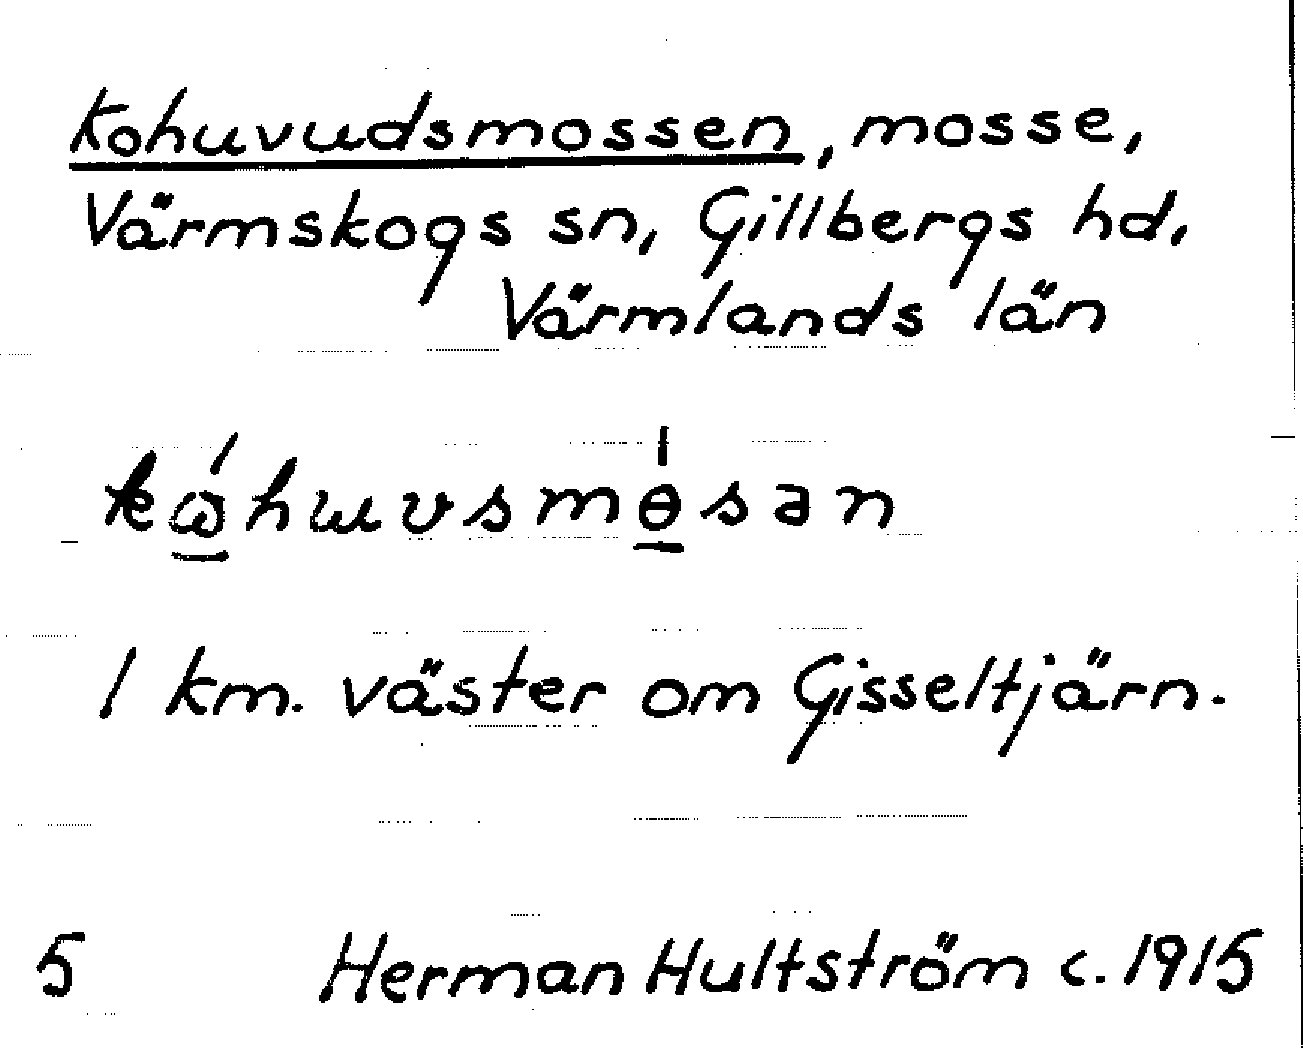 Kohuvudsmossen, mosse,
Värmskogs sn, Gillbergs hd,
Värmlands län
kώ̲huvsmɵ̲̍sən
1 km. väster om Gisseltjärn.
5 Herman Hultström c. 1915